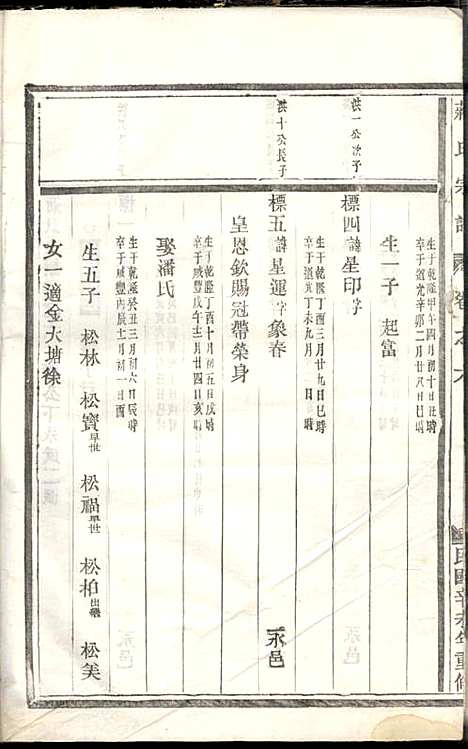 氏宗譜 卷之九 民國辛未年重修
生于乾隆甲午四月初十日丑時
卒于道光辛卯二月廿八日巳時
生一子 起富
洪一公次子
標四諱星印字
生于乾隆丁酉三月廿九日巳時
卒于道光丁未九月 日 時
洪十公長子
標五諱星運字象春 永邑
皇恩欽賜冠帶榮身
生于乾隆丁酉十月初五日戌時
卒于咸豐戊午十二月廿四日亥時
娶潘氏
生于乾隆癸丑三月初六日辰時
卒于咸豐丙辰二月初一日酉
生五子 松林 松寳早世 松福早世 松柏出繼 松美
女一適金大塘徐